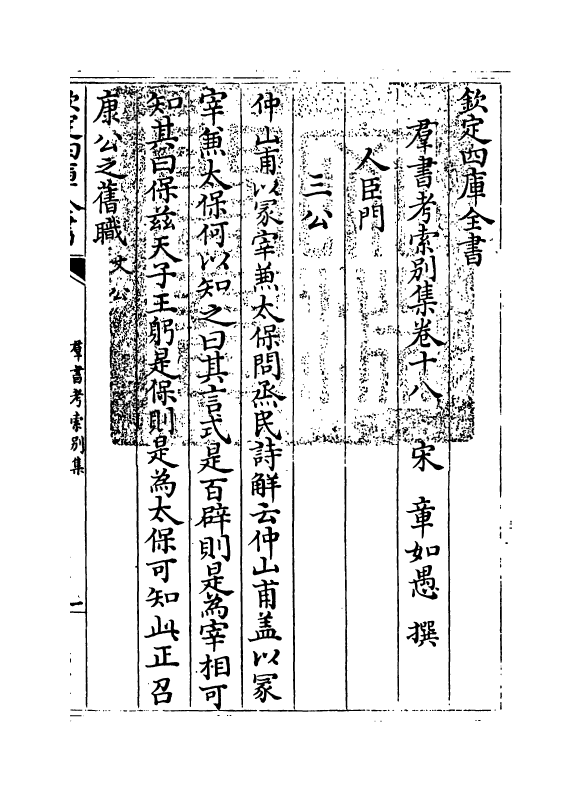 欽定四庫全書
羣書考索別集卷十八　宋　章如愚　撰
人臣門
三公
仲山甫以冢宰兼太保問烝民詩解云仲山甫盖以冢
宰兼太保何以知之曰其言式是百辟則是為宰相可
知其曰保兹天子王躬是保則是為太保可知此正召
康公之舊職文公
欽定四庫全書
羣書考索別集